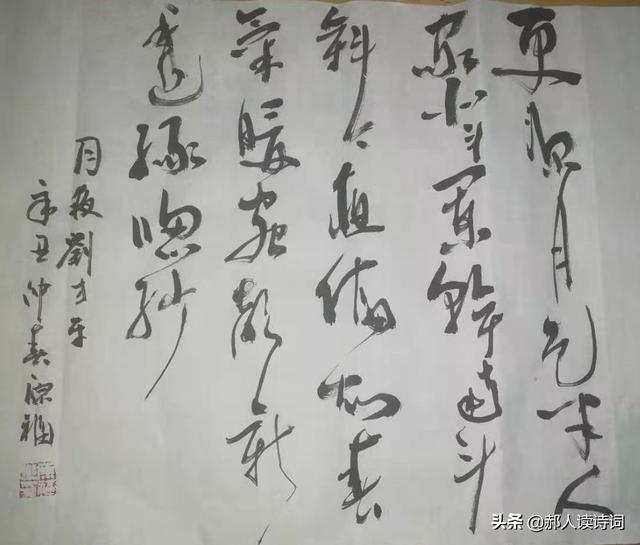 更深月色半人
家北斗闌幹南斗
斜今夜偏知春
氣暖蟲聲新
透綠窗紗
月夜劉方平
辛丑仲春
头条 @郝人读诗词